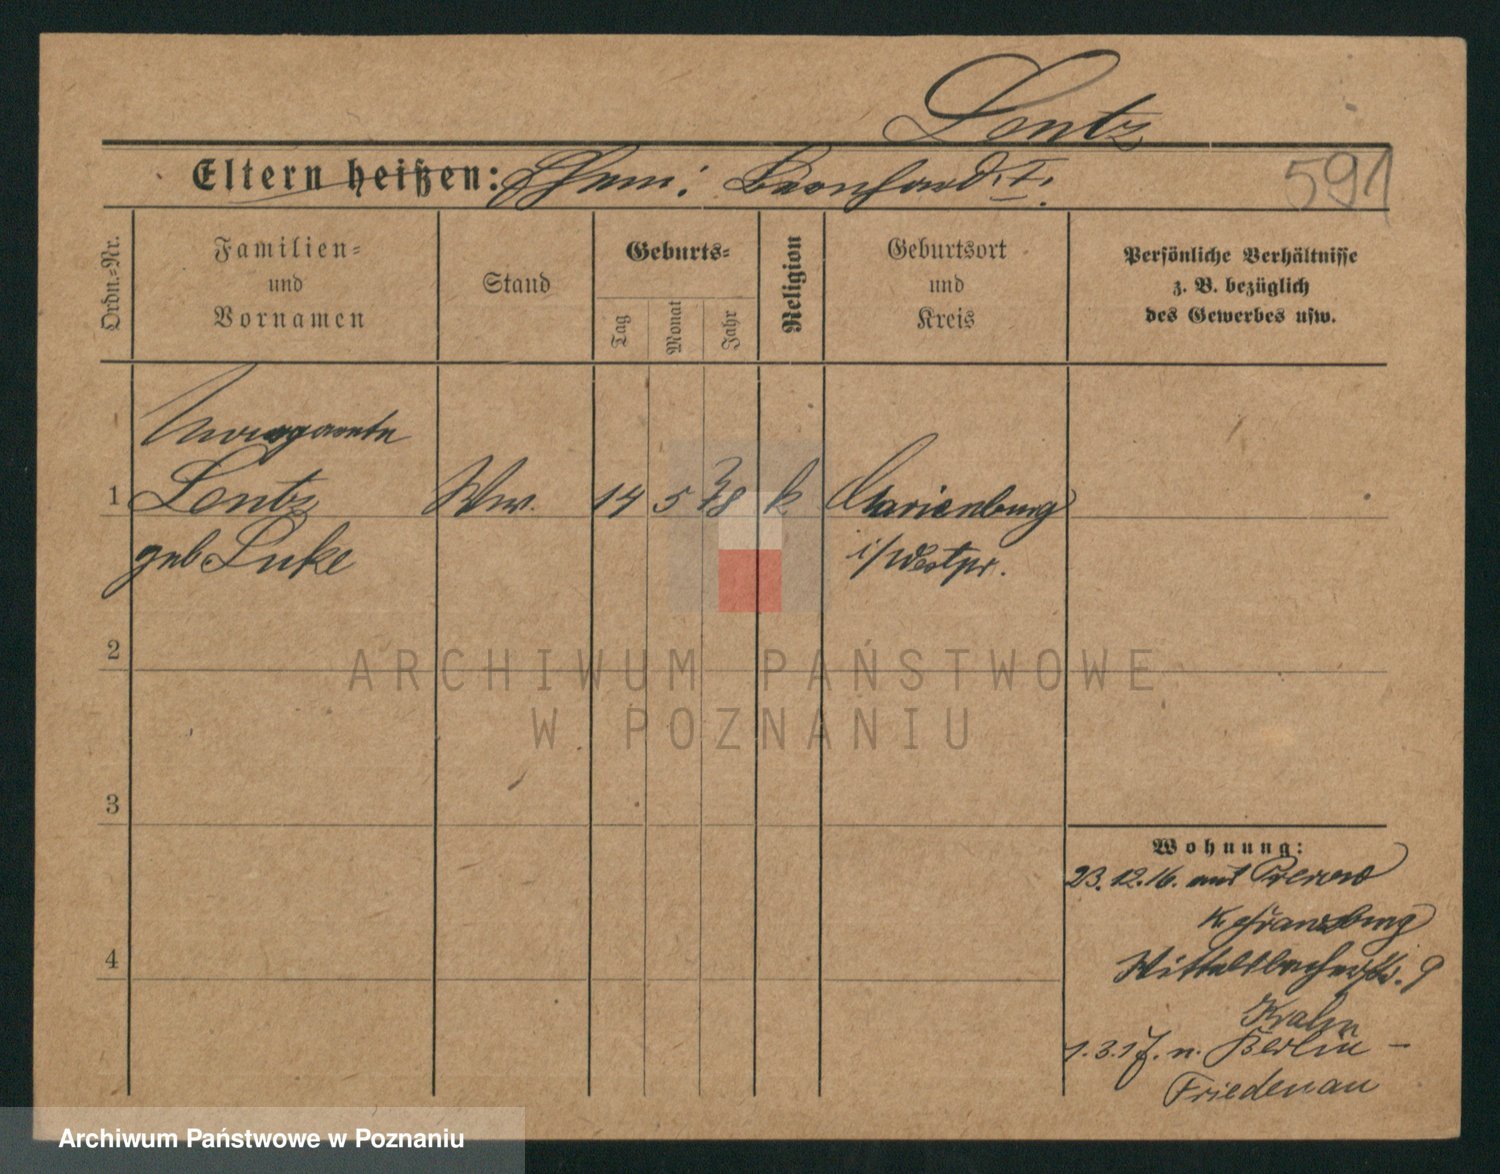 Lentz
Eltern heißen: Ehem: Leonhard †.
591
Ordn.-Nr.
Familien-
und
Vornamen
Stand
Geburts-
Tag
Monat
Jahr
Religion
Geburtsort
und
Kreis
Persönliche Verhältnisse
z. B. bezüglich
des Gewerbes usw.
1
Lentz
geb Luke
Ww.
14
5
78
k.
Marienburg
i/Westpr.
2
3
4
ARCHIWUM PAŃSTWOWE
W POZNANIU
Wohnung:
23.12.16. aus
Wittelsbacherstr. 9
1.3.17. n. Berlin -
Friedenau
Archiwum Państwowe w Poznaniu